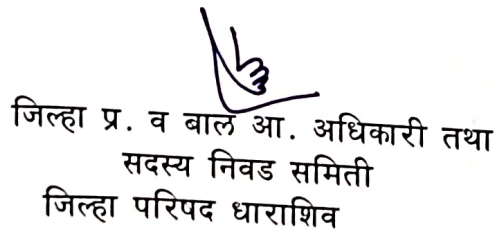 जिल्हा प्र. व बाल आ. अधिकारी तथा
सदस्य निवड समिती
जिल्हा परिषद धाराशिव